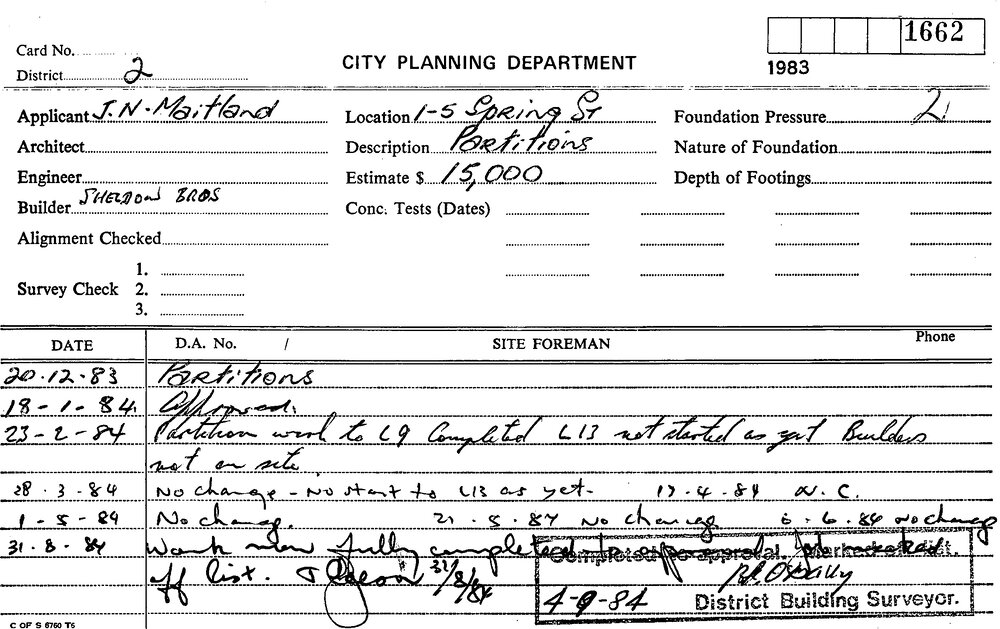 1662
Card No.
District 2
CITY PLANNING DEPARTMENT
1983
Applicant J.N. Maitland
Location 1-5 Spring St
Foundation Pressure 2.
Architect
Description Partitions
Nature of Foundation
Engineer
Estimate $ 15,000
Depth of Footings
Builder SHELDON BROS
Conc. Tests (Dates)
Alignment Checked
1.
Survey Check 2.
3.
DATE D.A. No. / SITE FOREMAN Phone
20.12.83 Partitions
18-1-84. Approved.
23-2-84 Partition work to L9 Completed L13 not started as yet Builders
not on site.
28.3.84 No change - No start to L13 as yet. 17.4.84 N.C.
1-5-84 No change. 21.5.84 No change 6.6.84 No change
31-8-84 Work now fully completed
off list. 31/8/84
Completed to approval. Marked off list.
4-9-84 District Building Surveyor.
C OF S 6760 T5